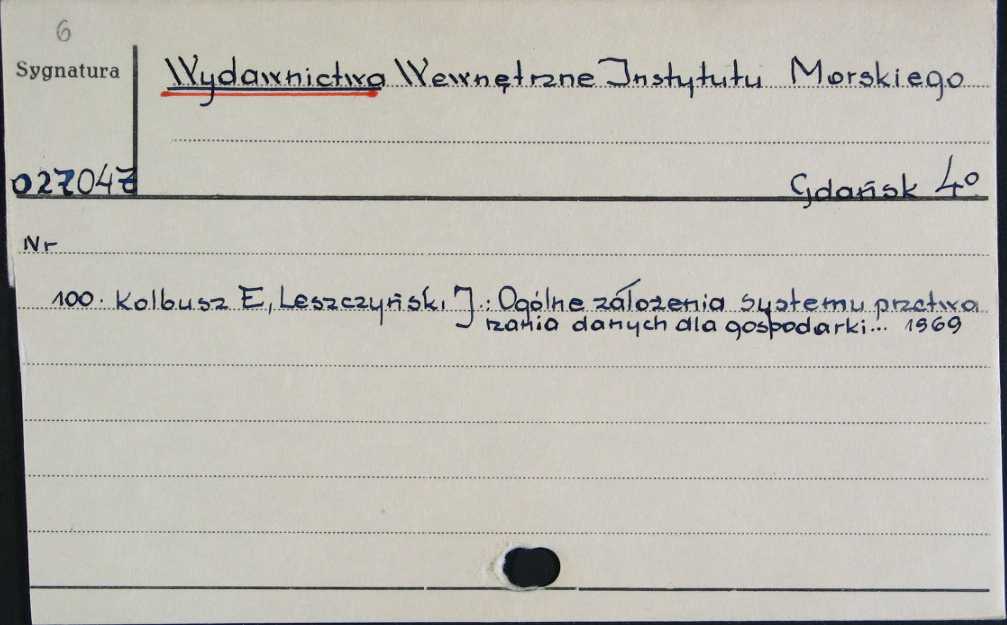 6
Sygnatura
Wydawnictwa Wewnętrzne Instytutu Morskiego
027047
Gdańsk 4°
Nr
100. Kolbusz E, Leszczyński J.: Ogólne załozenia systemu przetwa
rzania danych dla gospodarki... 1969